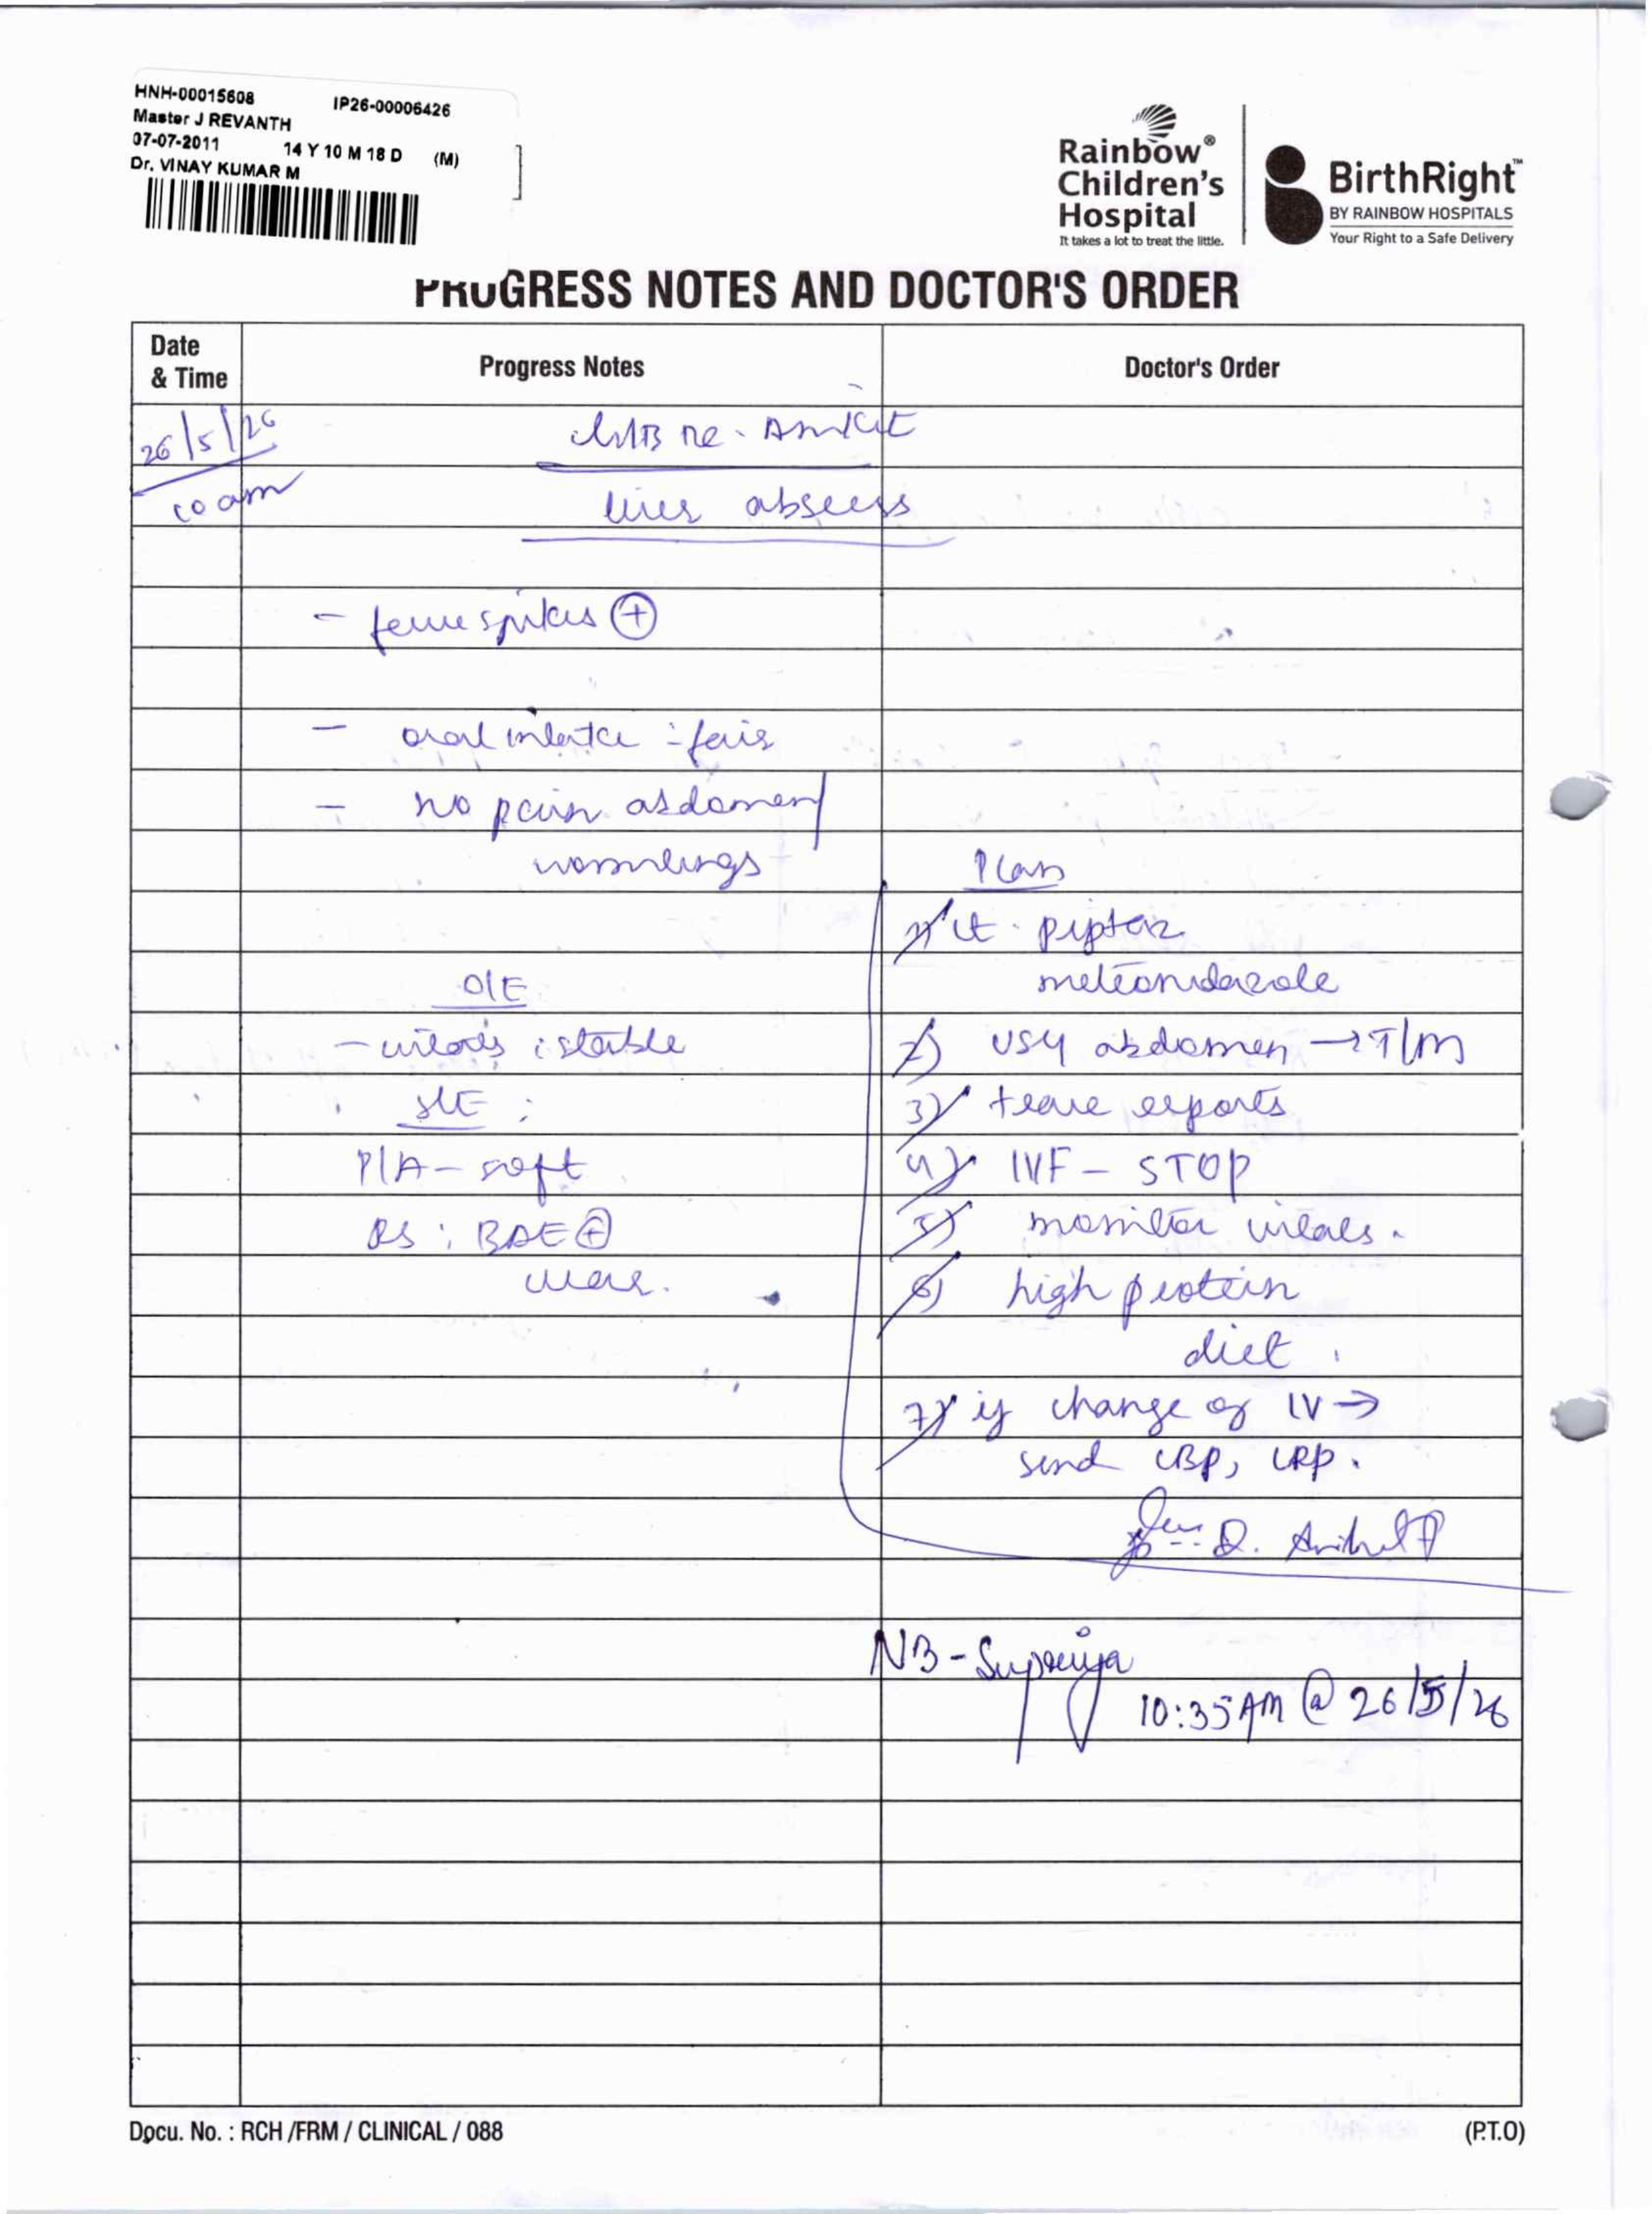 HNH-00015608 IP26-00006426
Master J REVANTH
07-07-2011 14 Y 10 M 18 D (M)
Dr. VINAY KUMAR M
Rainbow®
Children's
Hospital
It takes a lot to treat the little.
BirthRight™
BY RAINBOW HOSPITALS
Your Right to a Safe Delivery
PROGRESS NOTES AND DOCTOR'S ORDER
Date & Time
Progress Notes
Doctor's Order
26/5/26
10 am
liver abscess
- fever spikes ⊕
- oral intake : fair
- no pain abdomen/
vomitings
O/E
- vitals : stable
S/E :
P/A - soft
RS : BAE ⊕
clear.
Plan
1) ct. piptaz
metronidazole
2) USG abdomen → T/m
3) trace reports
4) IVF - STOP
5) monitor vitals.
6) high protein
diet.
7) if change of IV →
send CBP, CRP.
NB - Supriya
10:35 AM @ 26/5/26
Docu. No. : RCH /FRM / CLINICAL / 088
(P.T.O)